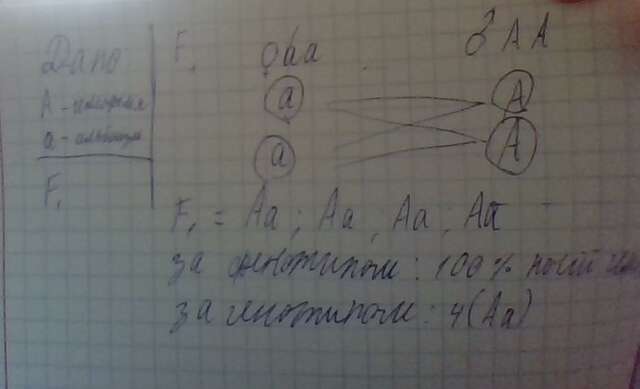 Дано
A -
a -
F₁
F₁
♀ aa
♂ AA
a
A
a
A
F₁ = Aa ; Aa , Aa ; Aa
за фенотипом : 100%
за генотипом : 4 (Aa)